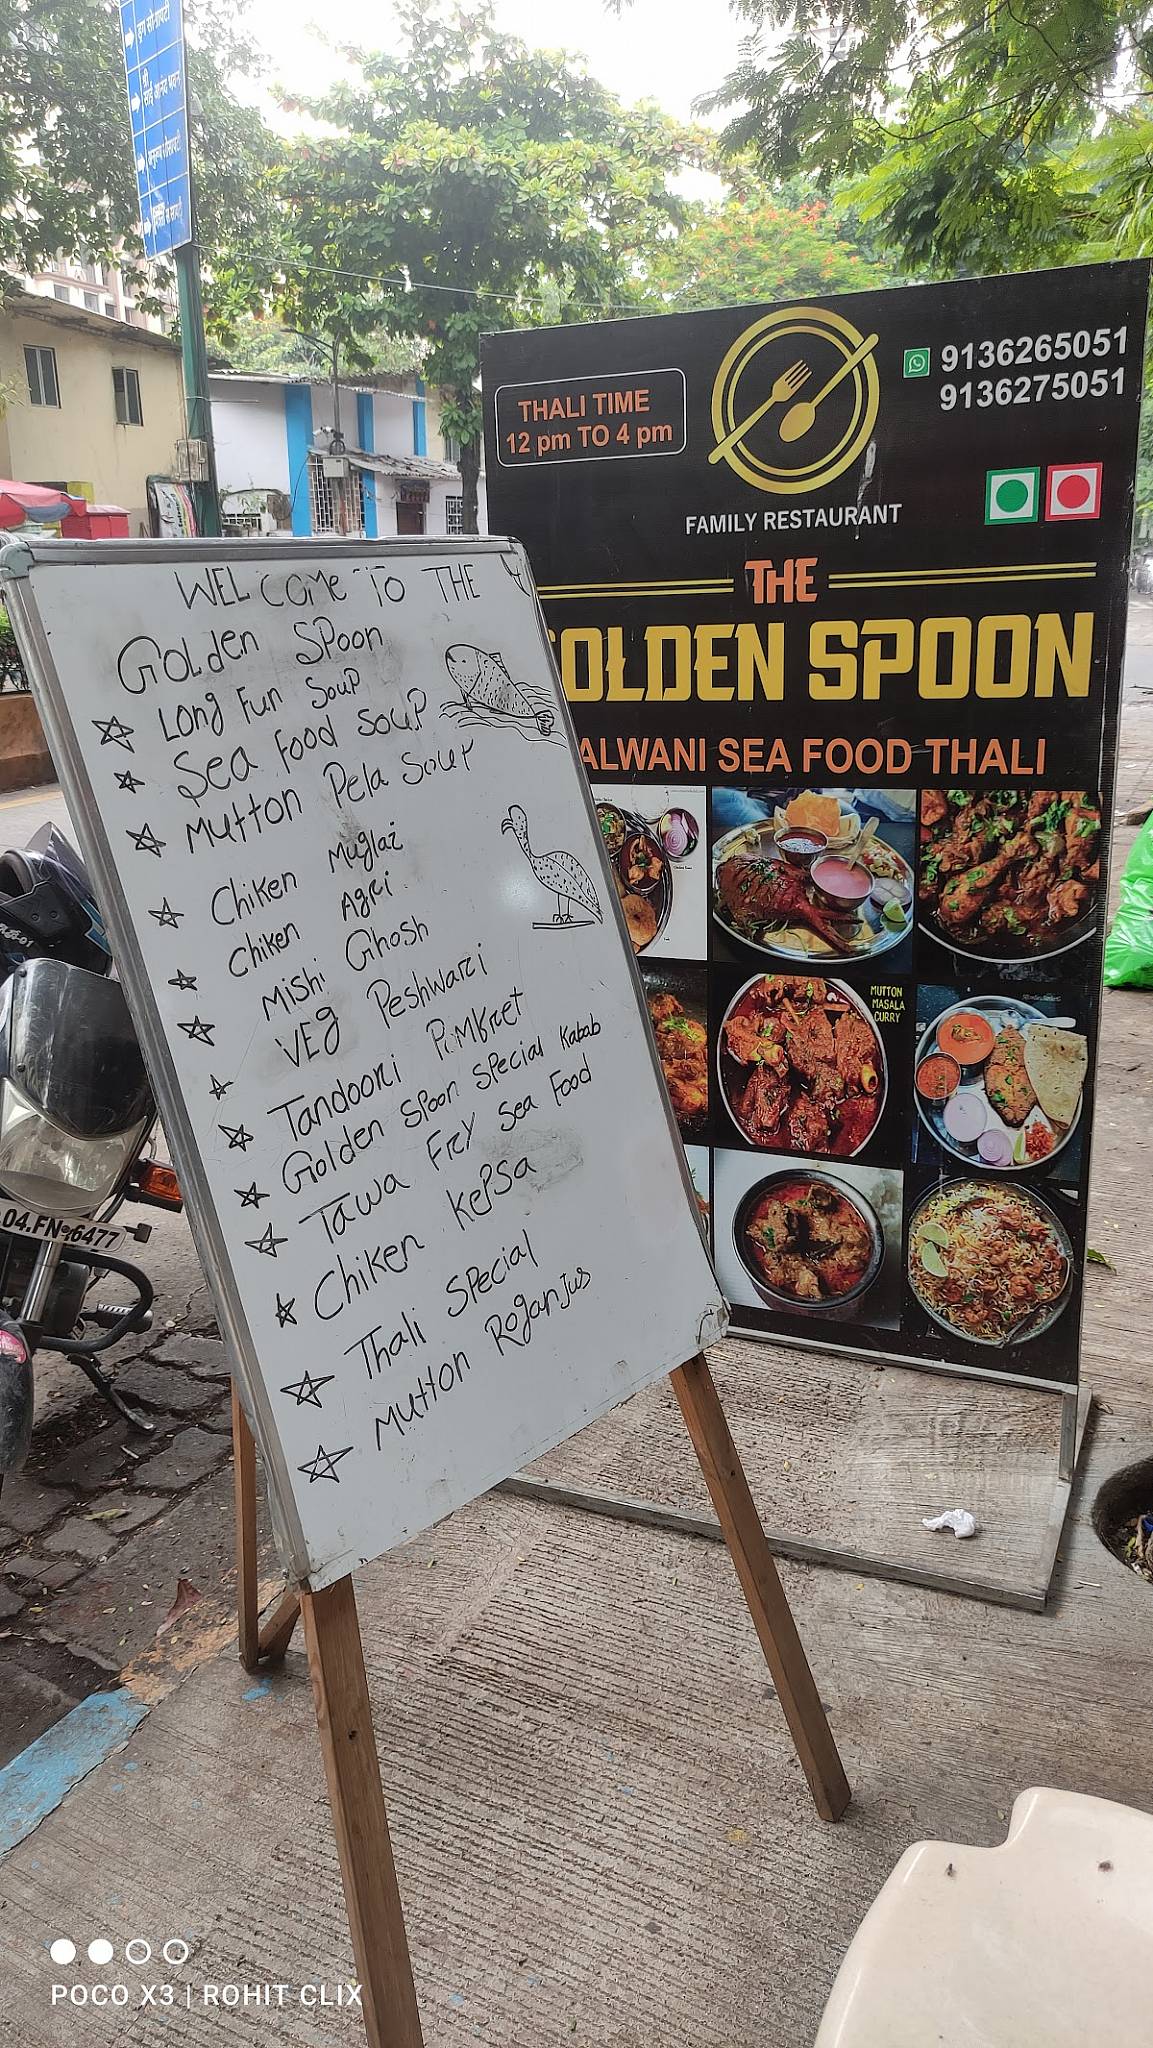 WELCOME TO THE
Golden Spoon
Long Fun Soup
Sea Food Soup
Mutton Pela Soup
Chiken Muglai
Chiken Agri
Mishi Ghosh
Veg Peshwari
Tandoori Pimfret
Golden Spoon Special Kabab
Tawa Fry Sea Food
Chiken Kepsa
Thali Special
Mutton Roganjus
THALI TIME
12 pm TO 4 pm
9136265051
9136275051
FAMILY RESTAURANT
THE
OLDEN SPOON
ALWANI SEA FOOD THALI
MUTTON
MASALA
CURRY
04.FN 6477
POCO X3 | ROHIT CLIX